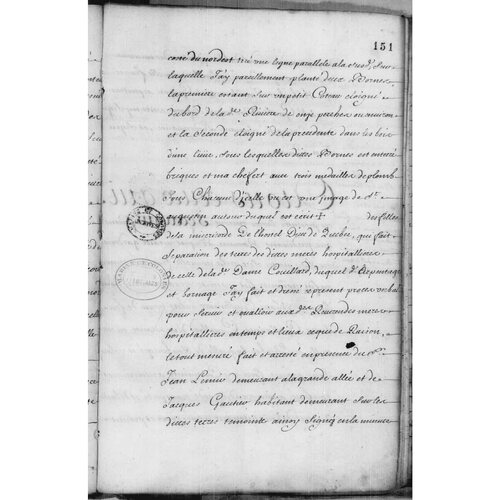 151
costé du nordest tiré une ligne parallele a la susd. Sur
laquelle J'ay pareillement planté deux Bornes
la premiere estant sur un petit Coteau éloigné
du bord de la de. Riviere de onze perches ou environ
et la Seconde éloigné de la precedente dans les bois
d'une lieue, sous lesquelles dittes Bornes est enterré
briques et machefert aux trois medailles de plomb
Sur Chacune d'icelle ou est un Image de St.
augustin autour duquel est ecrit + des filles
de la misericorde De l'hostel Dieu de Quebec, qui fait
Separation des terres des dittes meres hospitallieres
de celle de la de. Dame Couillard, duquel d'Arpentage
et bornage J'ay fait et dressé le present procez verbal
pour Servir et valloir aux des. Reverendes meres
hospitallieres en temps et lieux ce que de Raison,
le tout mesuré fait et arresté en presence du Sr.
Jean Lemire demeurant a la grande allée et de
Jacques Gautier habitant demeurant Sur les
dittes terres temoins ainsy Signez en la minute